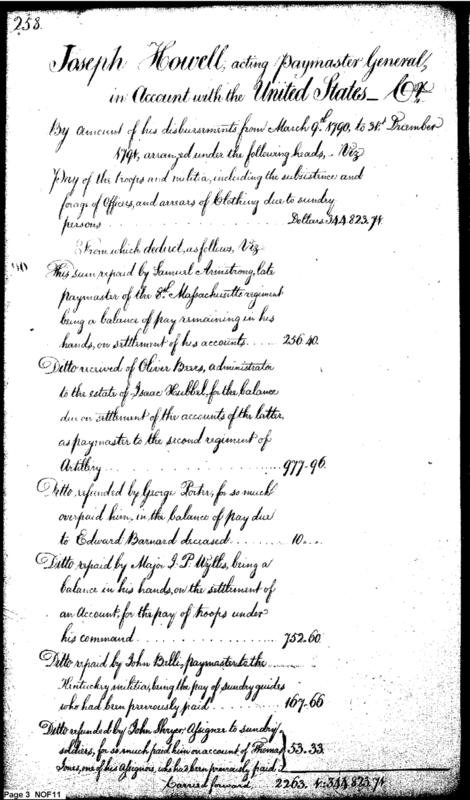 258.
Joseph Howell, acting Paymaster General,
in Account with the United States_ Cr.
By amount of his disbursements from March 9th 1790, to 31st December
1791, arranged under the following heads,- Viz
Pay of the troops and militia, including the subsistence and
forage of Officers, and arrears of Clothing due to sundry
persons ........ Dollars 344 823.74
From which deduct, as follows, Viz
This sum repaid by Samuel Armstrong, late
paymaster of the 8th Massachusetts regiment
being a balance of pay remaining in his
hands, on settlement of his accounts ..... 256 40.
Ditto received of Oliver, administrator
to the estate of Isaac Hubbel, for the balance
due on settlement of the accounts of the latter,
as paymaster to the second regiment of
Artillery ........ 977-96.
Ditto refunded by George Porter, for so much
overpaid him, in the balance of pay due
to Edward Barnard deceased ........ 10....
Ditto repaid by Major J. P. Wyllys, being a
balance in his hands, on the settlement of
an Account, for the pay of troops under
his command ........ 752.60
Ditto repaid by John Belli, paymaster to the
Kentucky militia, being the pay of sundry guides
who had been previously paid ........ 167-66
Ditto refunded by John, Assignee to sundry
soldiers, for so much paid him on account of Thomas
Jones, one of his Assignors, who had been previously paid. } 53.33
Carried forward 2263. 344,823.74
Page 3 NOF11